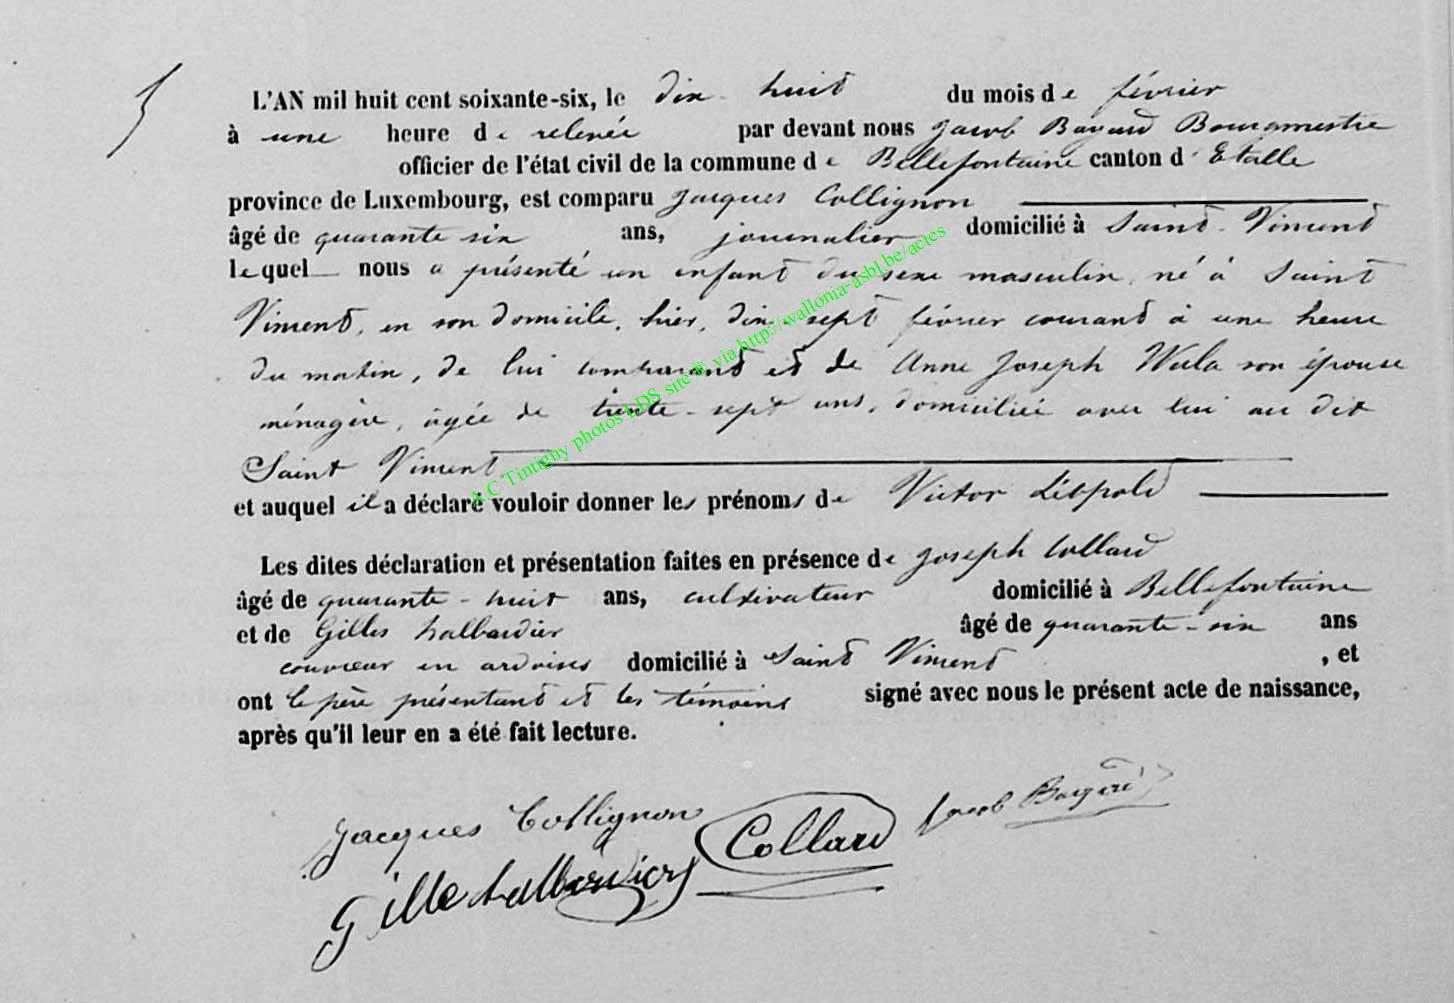 5
L'AN mil huit cent soixante-six, le dix-huit du mois de février
à une heure de relevée par devant nous Jacob Bayard Bourgmestre
officier de l'état civil de la commune de Bellefontaine canton d'Etalle
province de Luxembourg, est comparu Jacques Collignon
âgé de quarante six ans, journalier domicilié à Saint-Vincent
lequel nous a présenté un enfant du sexe masculin, né à Saint
Vincent, en son domicile, hier, dix-sept février courant à une heure
du matin, de lui comparant et de Anne Joseph son épouse
ménagère, âgée de trente-sept ans, domiciliée avec lui au dit
Saint Vincent
et auquel il a déclaré vouloir donner les prénoms de Victor Léopold
Les dites déclaration et présentation faites en présence de Joseph Collard
âgé de quarante-huit ans, cultivateur domicilié à Bellefontaine
et de Gilles halbardier âgé de quarante-six ans
couvreur en ardoises domicilié à Saint Vincent , et
ont le père présentant et les témoins signé avec nous le présent acte de naissance,
après qu'il leur en a été fait lecture.
Jacques Collignon
Collard
Jacob
Gille halbardier
A C Tintigny photos LDS site © via http://wallonia-asbl.be/actes